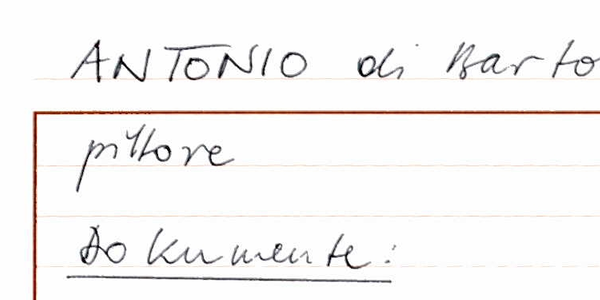 ANTONIO di Barto
pittore
Dokumente: